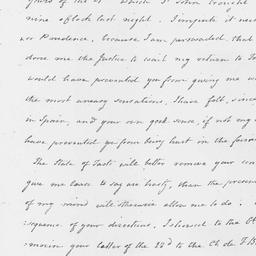 yours of the 21st which Mr. John brought
nine o'Clock last night. I impute it nei
or Prudence, because I am perswaded that
done me the Justice to wait my return to
would have prevented you from giving me
the most uneasy sensations, I have felt, since
in Spain, and your own good sense, if not my
have prevented you from being hurt in the
The State of Facts will better remove your con
give me leave to say so hasty, than the presen
of my mind will otherwise allow me to do.
sequence of your directions, I shewed to the
morain your letter of the 18th to the Ch. de